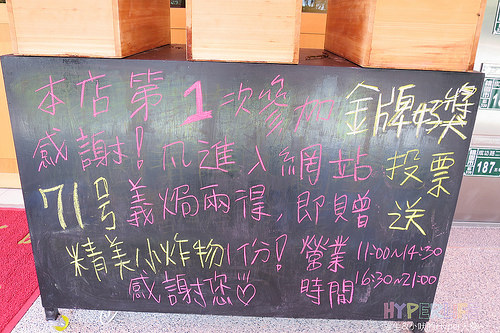 本店第1次參加金牌好獎
感謝!凡進入網站投票
71号義焗兩得,即贈送
精美小炸物1份!營業11:00~14:30
感謝您 時間16:30~21:00
187
HYPE